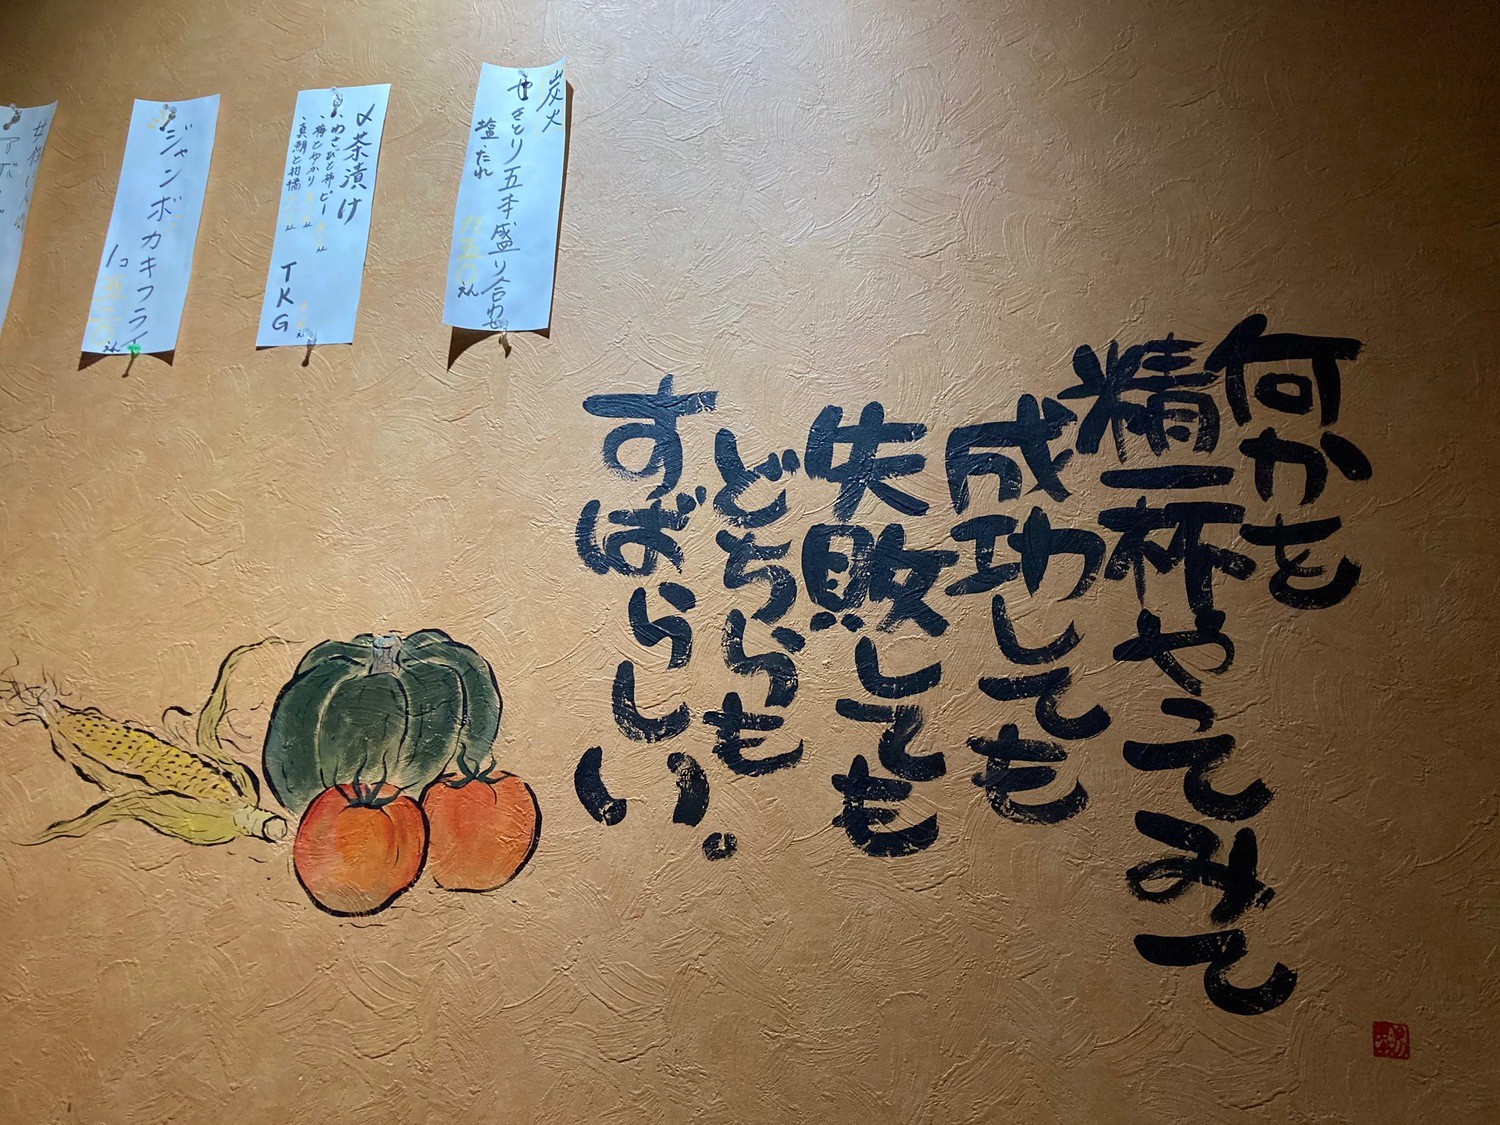 何かを
精一杯やってみて
成功しても
失敗しても
どちらも
すばらしい。
炭火
やきとり五本盛り合わせ
塩・たれ
えん
〆茶漬け
・わさびと柿ピー
・梅とゆかり
・真鯛と柑橘
TKG
ジャンボカキフライ
1コ
えん